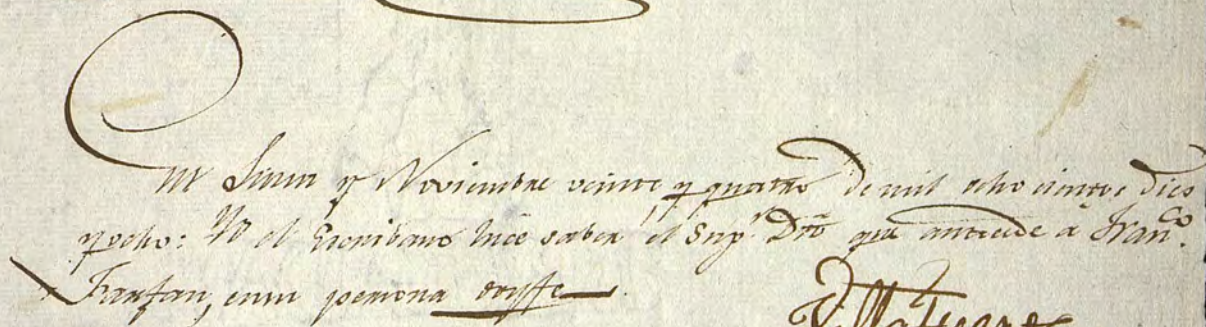 En Lima y Noviembre veinte y quatro de mil ocho cientos dies
y ocho: Yo el Escribano hice saber el Sup.r Dto que antecede a Fran.co
Farfan, en su persona doyffe